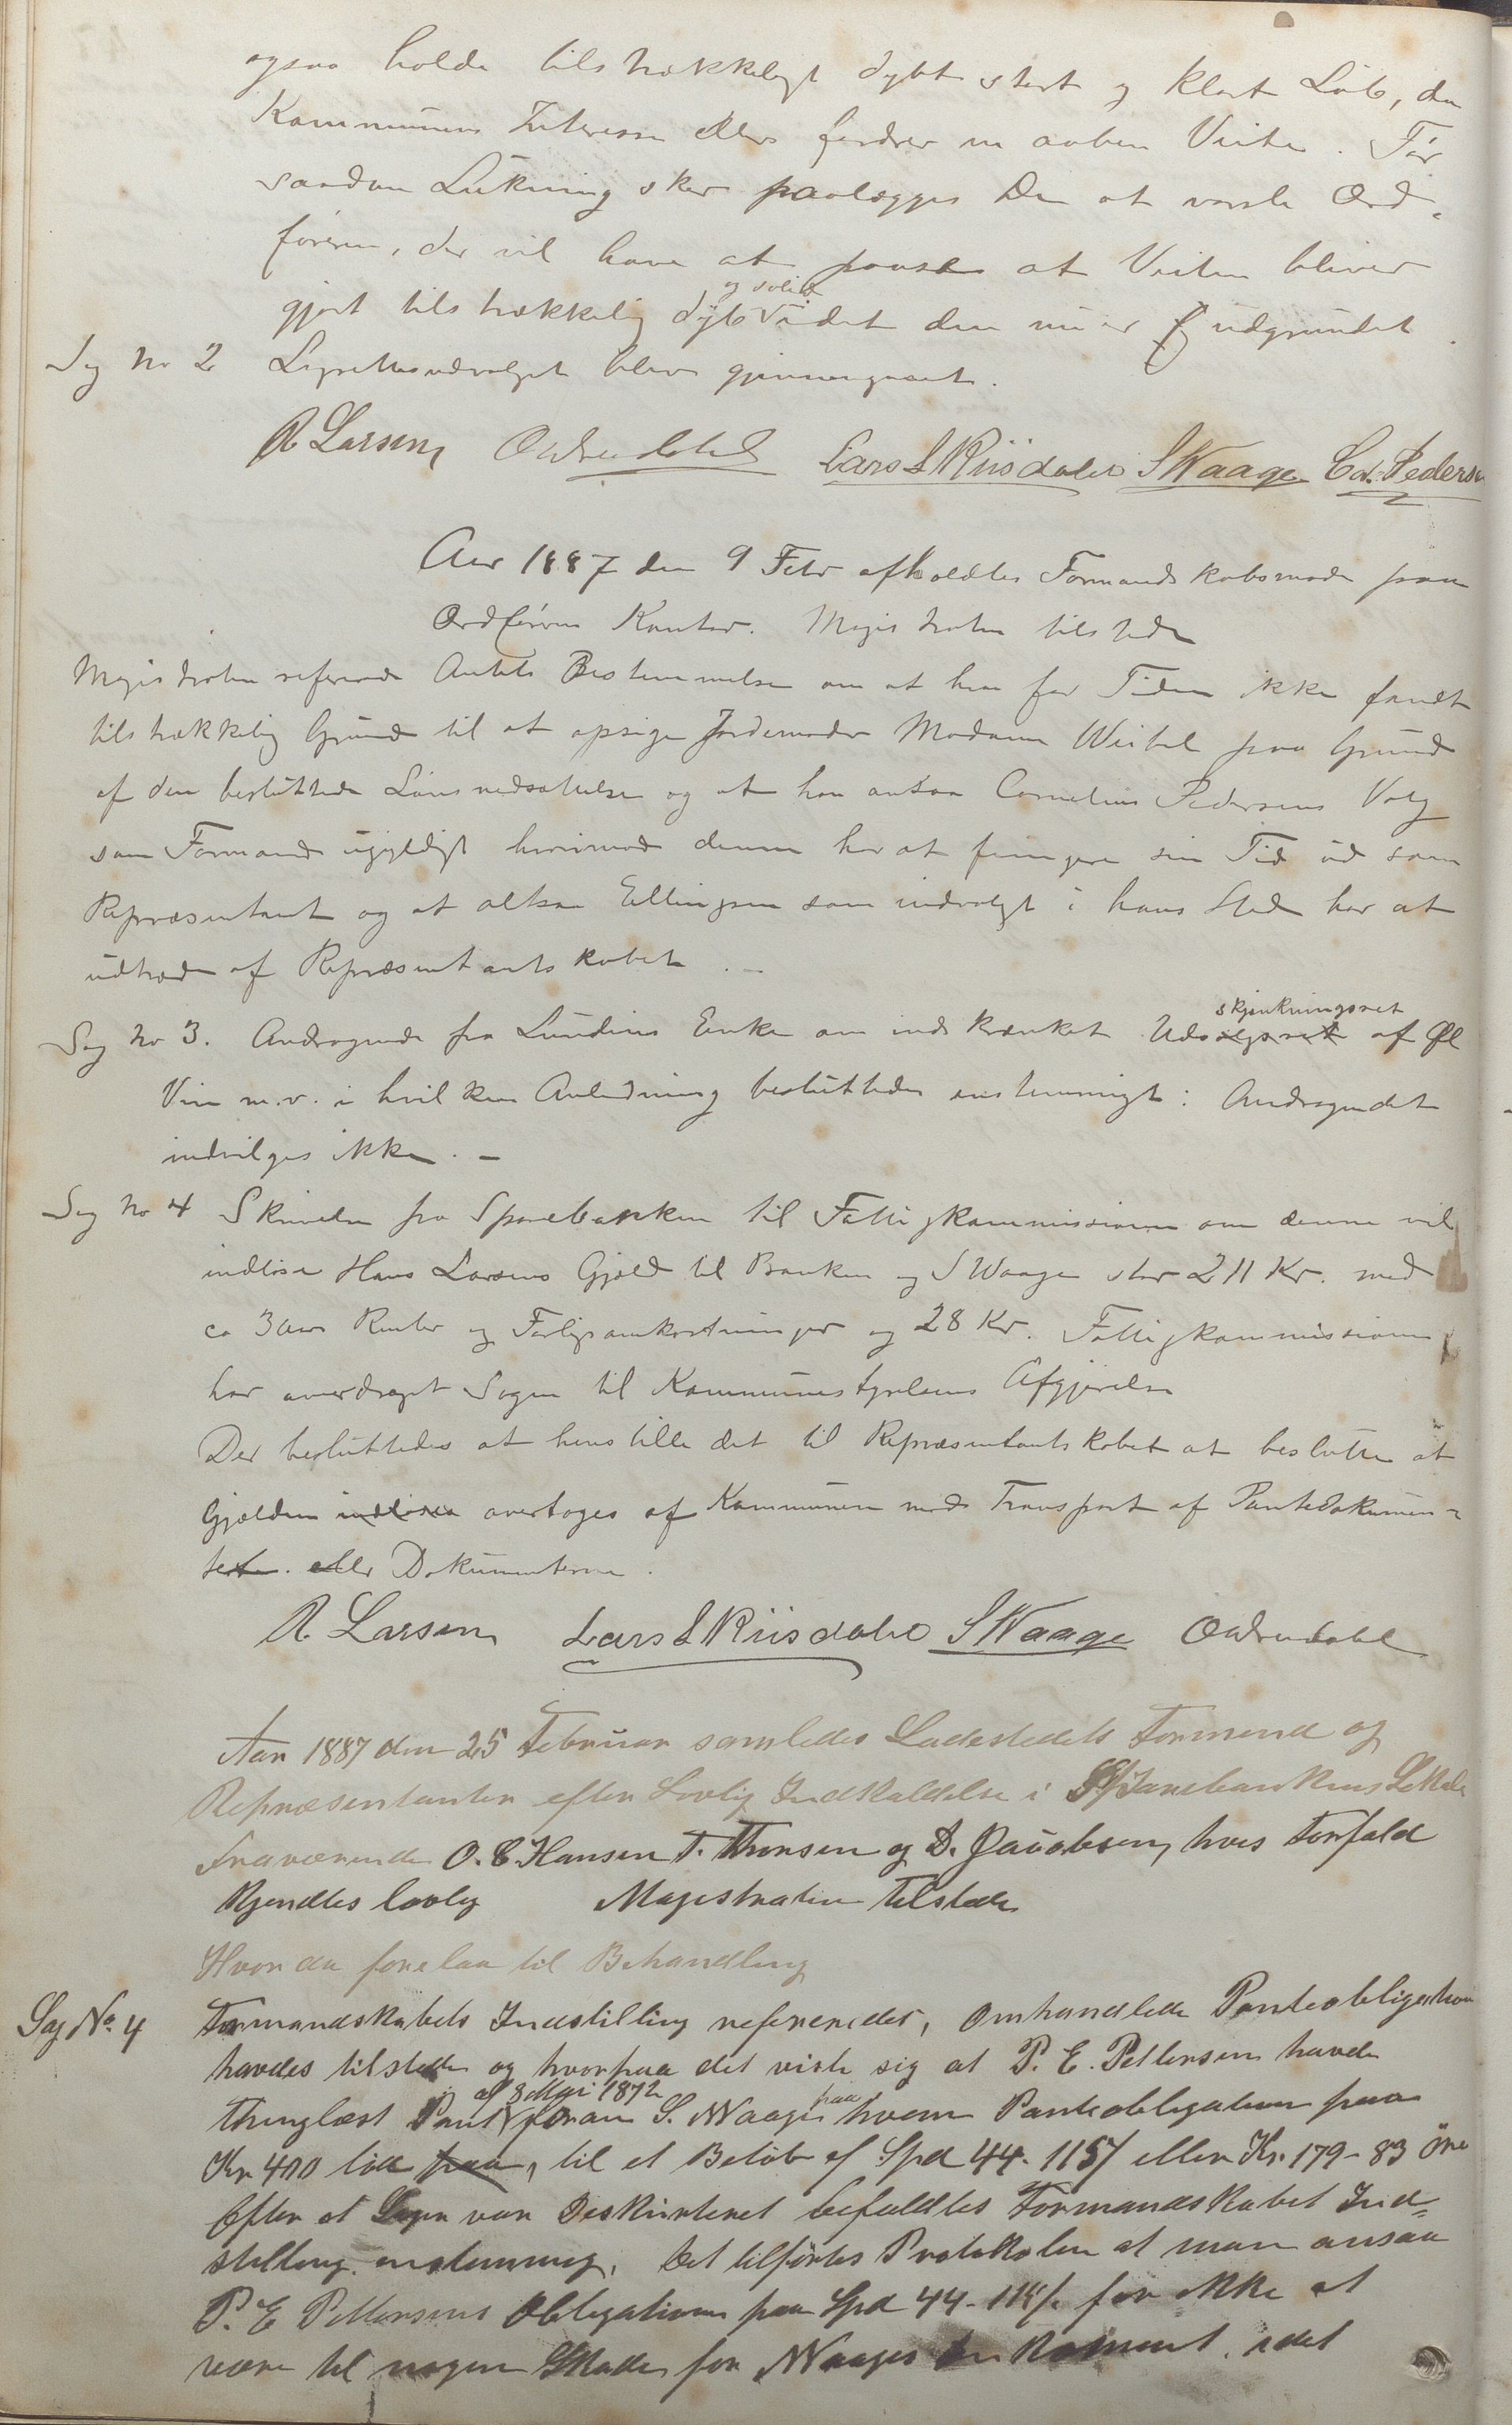 ogsaa holde tilstrækkeligt dybt stort og klart Løb, da
Kommunens Interesse ellers fordrer en aaben Veite. Før
saadan Lukning sker paalægges De at varsle Ord-
føreren, der vil have at paase at Veiten bliver
gjort tilstrækkelig dyb og solid idet den nu er udgrundet.
Sag No 2 Ligretteudvalget blev gjennemgaaet.
R Larsen Lars L Riisdahl S Waage Cor. Pedersen
Aar 1887 den 9 Febr afholdtes Formandskabsmøde paa
Ordførerens Kontor. Magistraten tilstede
Magistraten refererede Amtets Bestemmelse om at han for Tiden ikke fandt
tilstrækkelig Grund til at opsige Jordemoder Madame Weibel paa Grund
af den besluttede Lønsnedsættelse og at han ansaa Cornelius Pedersens Valg
som Formand ugyldigt hvorimod denne har at fungere sin Tid ud som
Repræsentant og at altsaa Ellingsen som indvalgt i hans Sted har at
udtræde af Repræsentantskabet. -
Sag No 3. Andragende fra Lundins Enke om indskrænket Udskjænkningsret af Øl
Vin m.v. i hvilken Anledning besluttedes enstemmigt: Andragendet
indvilges ikke. -
Sag No 4 Skrivelse fra Sparebanken til Fattigkommissionen om denne vil
indløse Hans Larsens Gjæld til Banken og S Waage stor 211 Kr. med
ca 3 Aars Renter og Forligsomkostninger og 28 Kr. Fattigkommissionen
har overdraget Sagen til Kommunestyrelsens Afgjørelse
Der besluttedes at henstille det til Repræsentantskabet at beslutte at
Gjælden indløses overtages af Kommunen mod Transport af Pantedokumen-
tet eller Dokumenterne.
R Larsen Lars L Riisdahl S Waage
Aar 1887 den 25 Februar samledes Ladestedets Formænd og
Repræsentanter efter Lovlig Indkaldelse i Sparebankens Lokale
Fraværende O. C. Hansen T. Thorsen og D. Jacobsen, hvis Forfald
Kjendtes lovlig Magistraten tilstede
Hvor da forelaa til Behandling
Sag No. 4 Formandskabets Indstilling refereredes, Omhandlede Panteobligation
havdes tilstede og hvorpaa det viste sig at P. E. Pettersen havde
thinglæst Pant af 8 Mai 1872 foran S. Waage paa hvem Panteobligation paa
Kr 400 lød paa, til et Beløb af Spd 44. 115/ eller Kr. 179-83 Øre
Efter at Sagen var Deskuteret befuldtes Formandskabet Ind-
stilling enstemmig. Det tilførtes Protokolen at man ansaa
P. E Pettersens Obligation paa Spd 44-115/ for ikke at
være til nogen Skade for Waages Dokument, idet